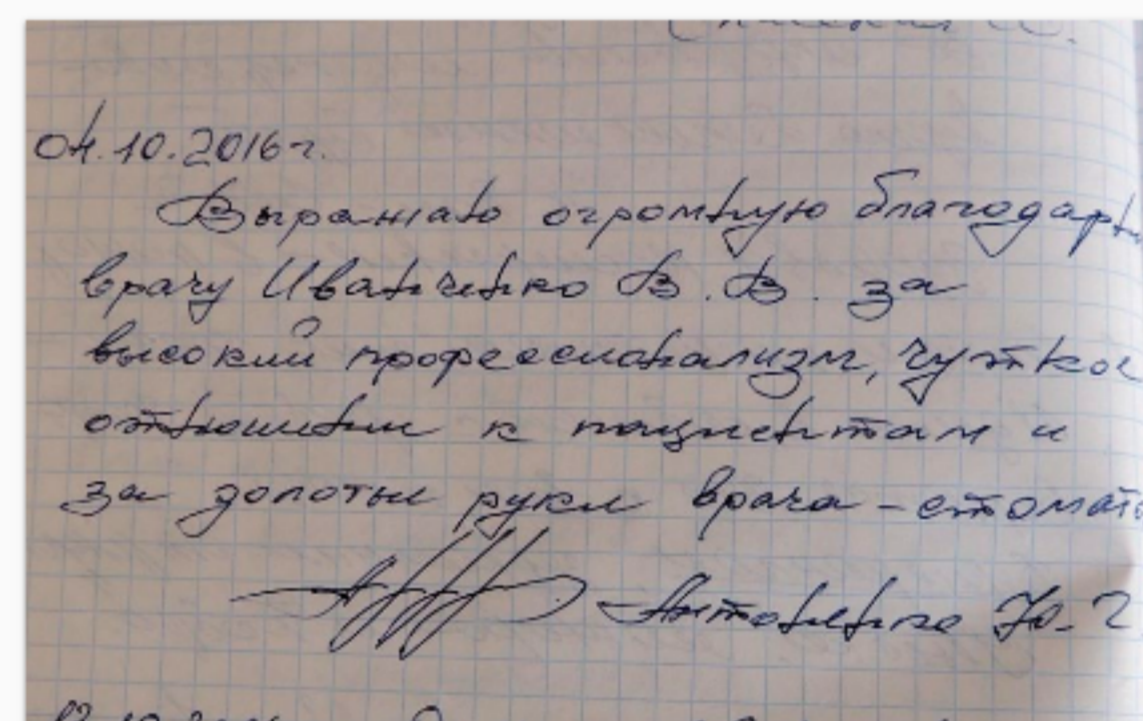 04.10.2016г.
Выражаю огромную благодарн
врачу Иванченко В.В. за
высокий профессионализм, чуткое
отношение к пациентам и
за золотые руки врача-стомато
Антоненко Ю.